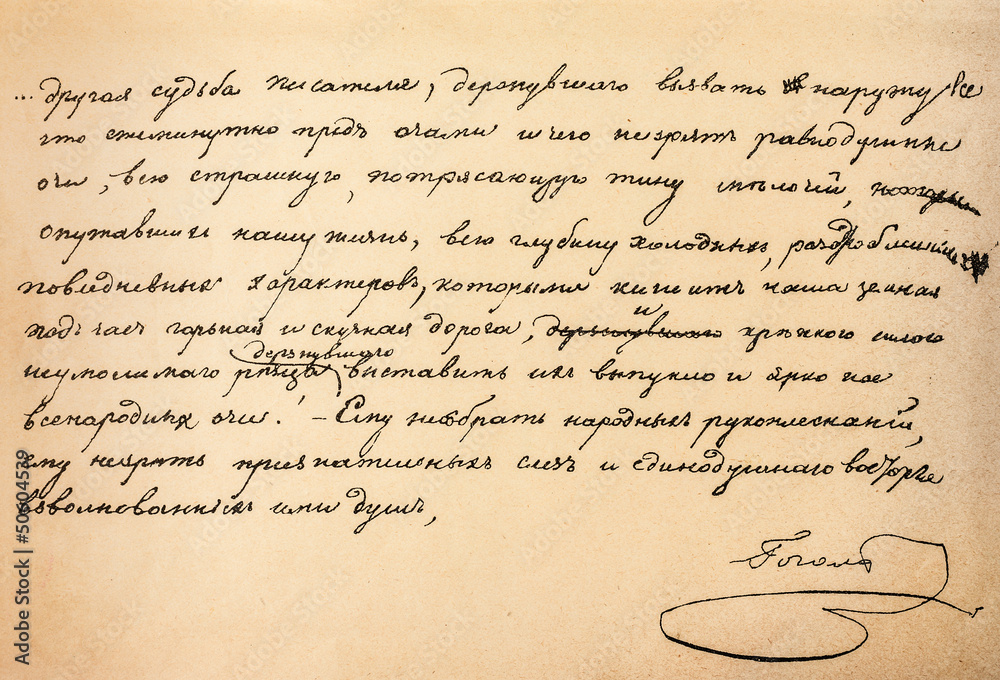 ... другая судьба писателя, дерзнувшаго вызвать наружу все
что ежеминутно предъ очами и чего незрятъ равнодушные
очи, всю страшную, потрясающую тину мелочей,
опутавших нашу жизнь, всю глубину холодныхъ, раздробленных
повседневныхъ характеровъ, которыми кишитъ наша земная
подъ часъ горькая и скучная дорога, и крѣпкою силою
неумолимаго рѣзца дерзнувшаго выставить ихъ выпукло и ярко на
всенародныя очи! — Ему несобрать народныхъ рукоплесканій,
ему незрѣть признательныхъ слезъ и единодушнаго восторга
взволнованныхъ ими душъ,
Гоголь
Adobe Stock | #506045539